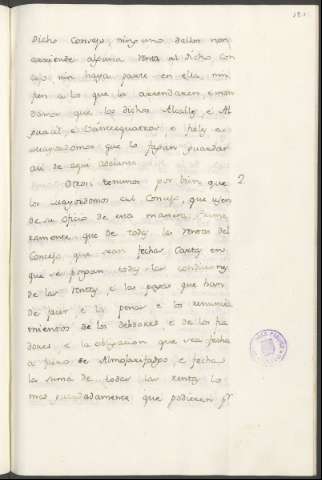 dicho Consejo, ninguno dellos non
arriende alguna renta al dicho con
cejo, nin haya parte en ella, nin
den a los que la arrendaren, e man
damos que los dichos Alcalles e Al
guacil, e Veintequatros, e fieles e
mayordomos que lo fagan guardar
asi de aqui adelante
Otrosi tenemos por bien que 2
los mayordomos del Consejo, que usen
de su oficio de esta manera, prime
ramente que de todas las rentas del
Concejo que sean fechas Cartas en
que se pongan todas las condiciones
de las rentas, e las pagas que han
de facer e la pena e los renuncia
mientos de los debdores e de los fia
dores e la obligacion que sea fecha
a fuero de Almojarifadgo, e fecha
la suma de todas las rentas lo
mas
damente que podieren